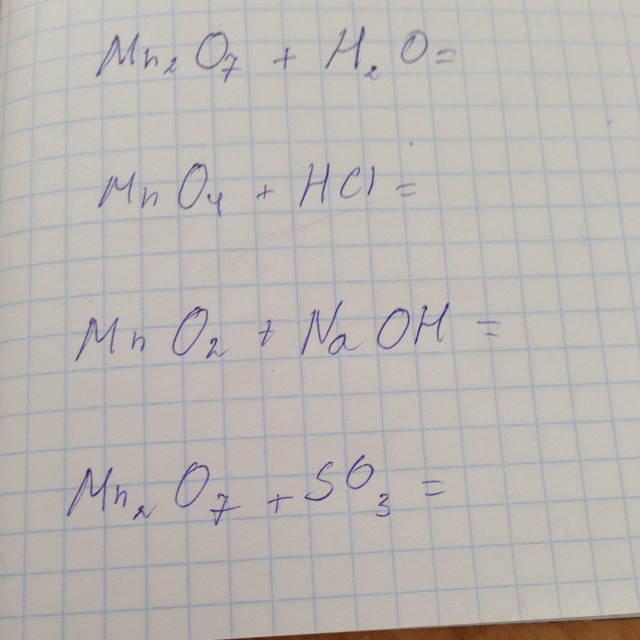 Mn₂O₇ + H₂O =
MnO₄ + HCl =
MnO₂ + NaOH =
Mn₂O₇ + SO₃ =